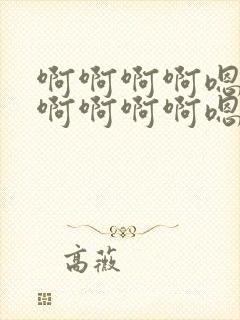 啊啊啊啊嗯
啊啊啊啊嗯
高薇